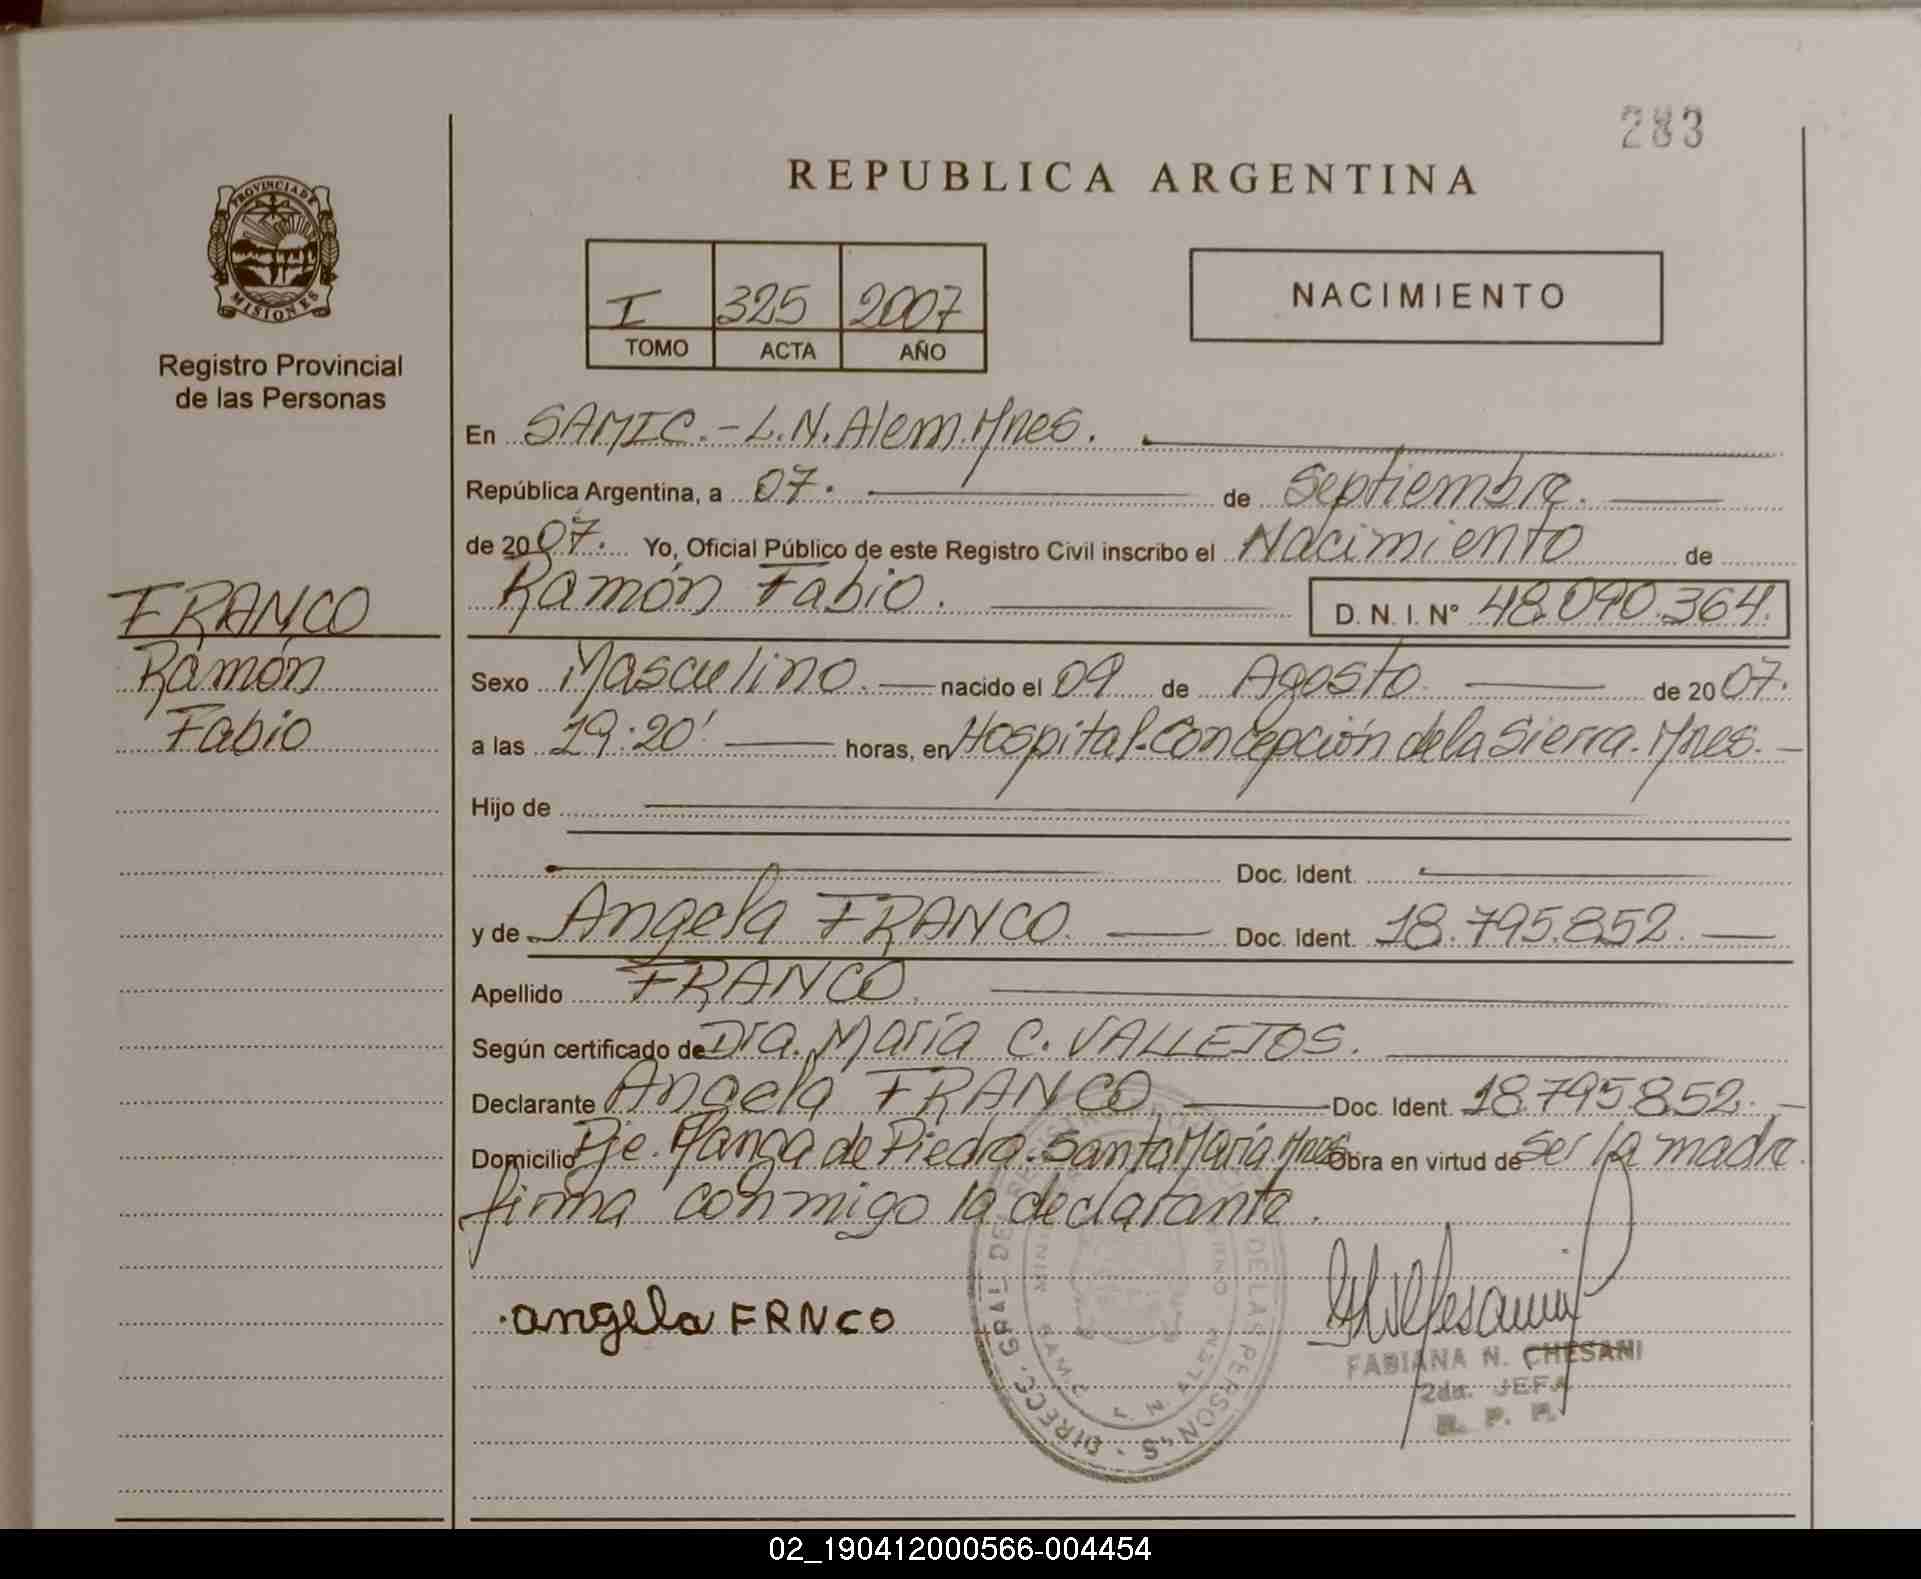 283
REPUBLICA ARGENTINA
PROVINCIA DE
MISIONES
Registro Provincial
de las Personas
I 325 2007
TOMO ACTA AÑO
NACIMIENTO
FRANCO
Ramón
Fabio
En SAMIC.-L.N.Alem.Mnes.
República Argentina, a 07. de Septiembre.
de 2007. Yo, Oficial Público de este Registro Civil inscribo el Nacimiento de
Ramón Fabio. D. N. I. N° 48.090.364.
Sexo Masculino. nacido el 09 de Agosto de 2007.
a las 19:20' horas, en Hospital-Concepción de la Sierra. Mnes.-
Hijo de
Doc. Ident.
y de Angela FRANCO. Doc. Ident. 18.795.852.
Apellido FRANCO.
Según certificado de Dra. María C. VALLEJOS.
Declarante Angela FRANCO. Doc. Ident. 18.795.852.-
Domicilio Pje. Manga de Piedra. Santa María. Mnes. Obra en virtud de ser la madre.
firma conmigo la declarante.
angela FRNCO
FABIANA N. CHESANI
2da. JEFA
R. P. P.
DIRECC. GRAL. DEL DE LAS PERSONAS
L. N. ALEM
02_190412000566-004454